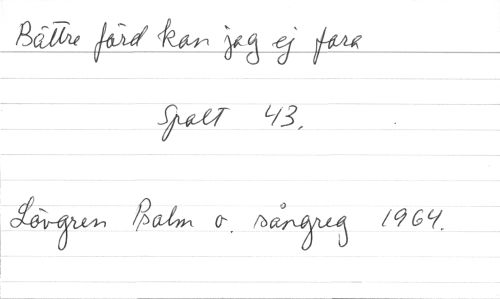 Bättre färd kan jag ej fara
Spalt 43.
Lövgren Psalm o. sångreg 1964.